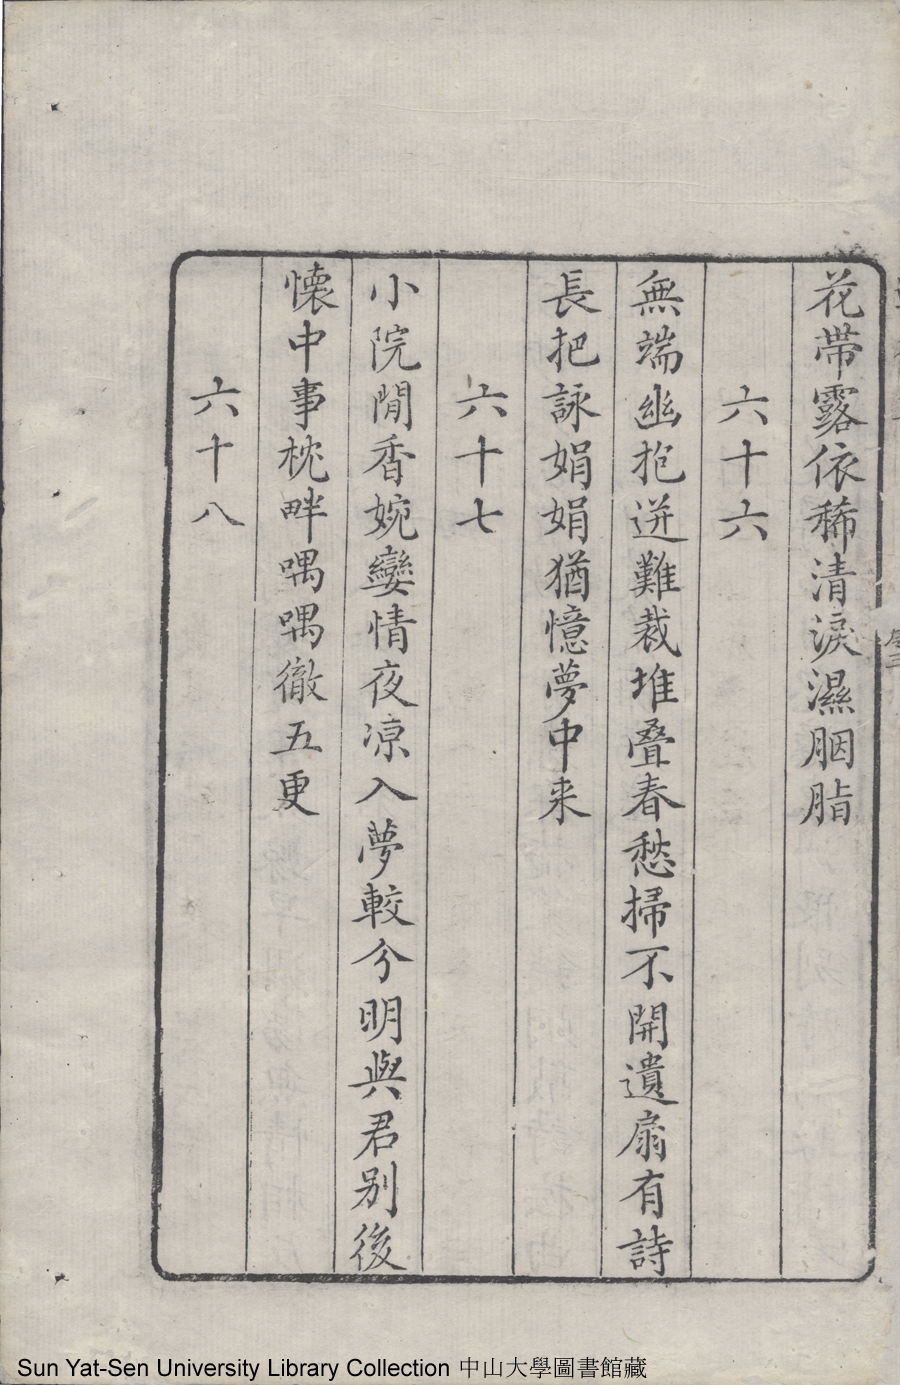 花帶露依稀清淚濕胭脂
六十六
無端幽抱迸難裁堆疊春愁掃不開遺扇有詩
長把詠娟娟猶憶夢中来
六十七
小院閒香婉孌情夜凉入夢較分明與君别後
懐中事枕畔喁喁徹五更
六十八
Sun Yat-Sen University Library Collection 中山大學圖書館藏